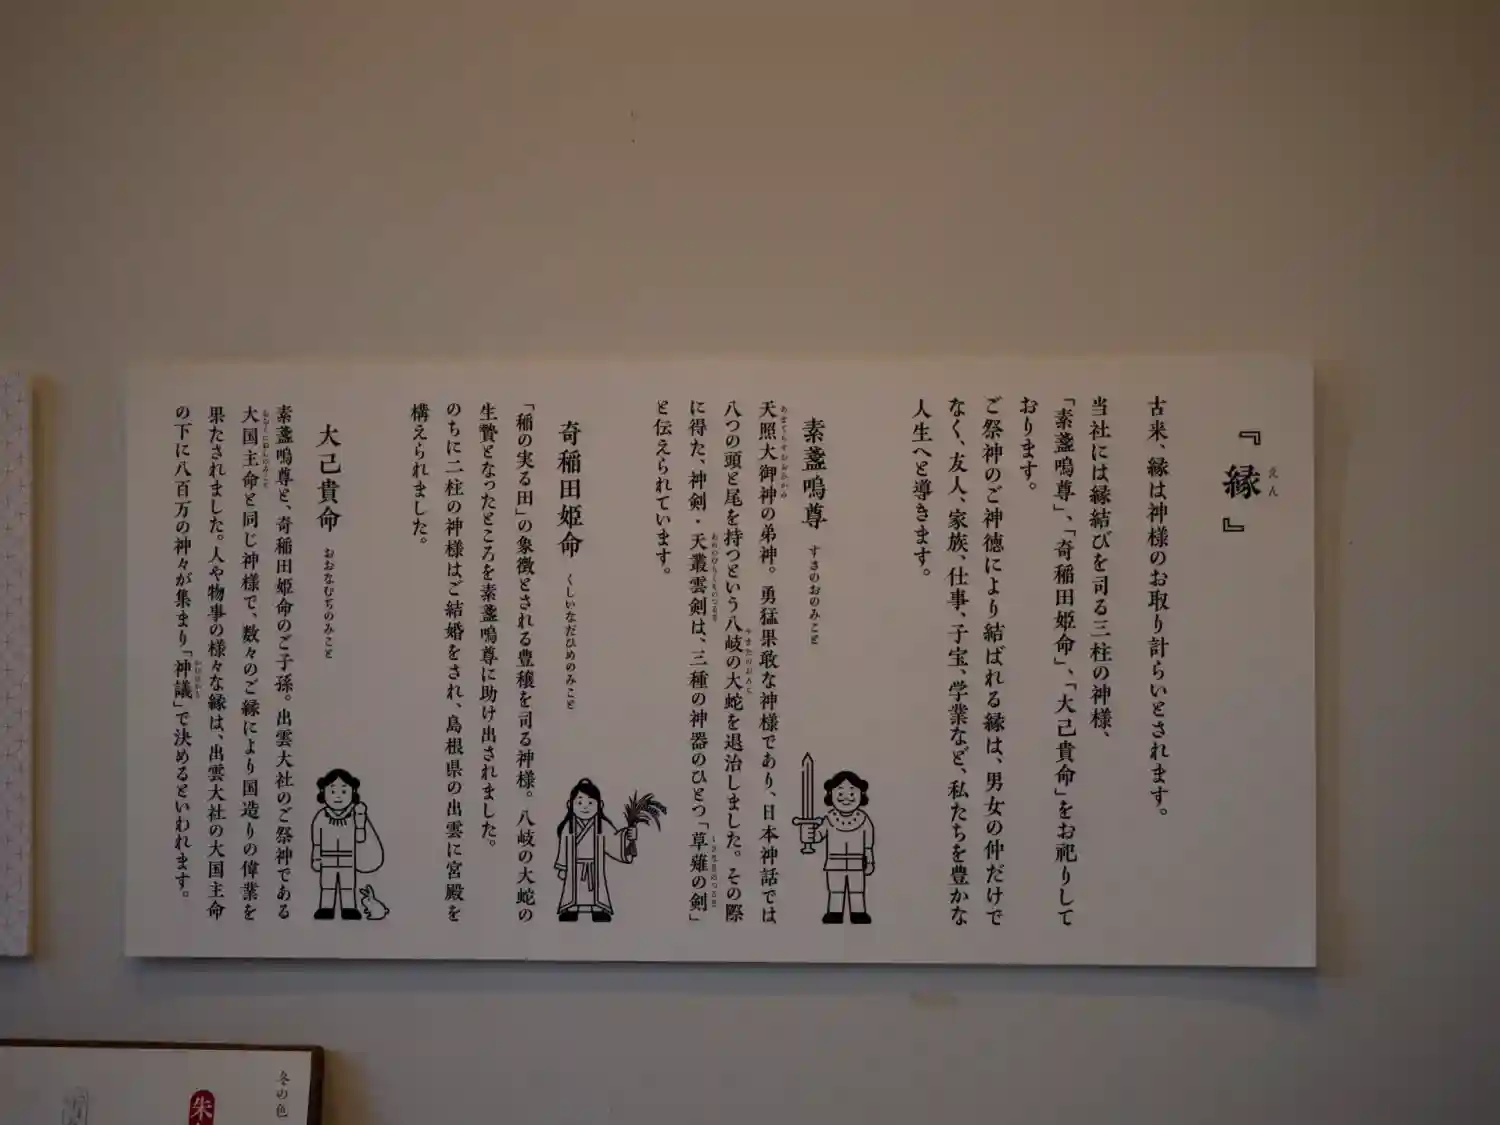 『縁』
えん
古来、縁は神様のお取り計らいとされます。
当社には縁結びを司る三柱の神様、
「素盞嗚尊」、「奇稲田姫命」、「大己貴命」をお祀りして
おります。
ご祭神のご神徳により結ばれる縁は、男女の仲だけで
なく、友人、家族、仕事、子宝、学業など、私たちを豊かな
人生へと導きます。
素盞嗚尊 すさのおのみこと
天照大御神の弟神。勇猛果敢な神様であり、日本神話では
あまてらすおおみかみ
八つの頭と尾を持つという八岐の大蛇を退治しました。その際
やまたのおろち
に得た、神剣・天叢雲剣は、三種の神器のひとつ「草薙の剣」
あめのむらくものつるぎ
くさなぎのつるぎ
と伝えられています。
奇稲田姫命 くしいなだひめのみこと
「稲の実る田」の象徴とされる豊穣を司る神様。八岐の大蛇の
生贄となったところを素盞嗚尊に助け出されました。
のちに二柱の神様はご結婚をされ、島根県の出雲に宮殿を
構えられました。
大己貴命 おおなむちのみこと
素盞嗚尊と、奇稲田姫命のご子孫。出雲大社のご祭神である
大国主命と同じ神様で、数々のご縁により国造りの偉業を
おおくにぬしのみこと
果たされました。人や物事の様々な縁は、出雲大社の大国主命
の下に八百万の神々が集まり「神議」で決めるといわれます。
かむはかり
冬の色
朱